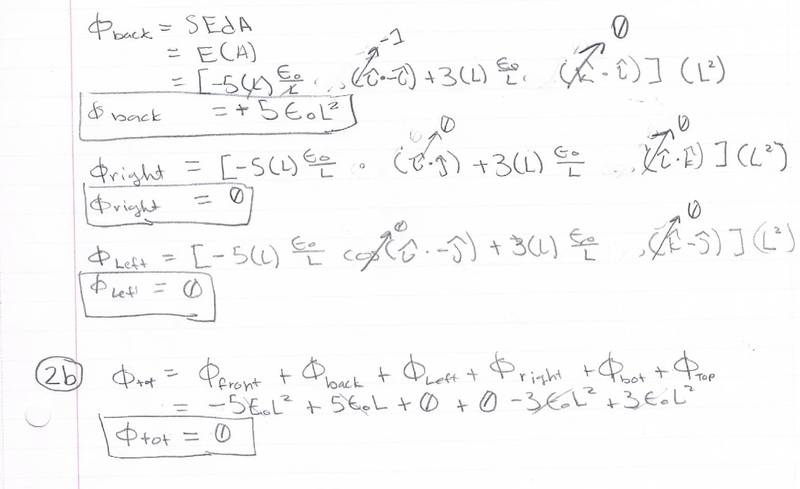 Φback = SEdA
= E(A)
= [-5(L) ε₀/L . (î·-î) + 3(L) ε₀/L . (k̂·î)] (L²)
-1 0
Φback = +5ε₀L²
Φright = [-5(L) ε₀/L · (î·ĵ) + 3(L) ε₀/L . (î·k̂)] (L²)
0 0
Φright = 0
ΦLeft = [-5(L) ε₀/L (î·-ĵ) + 3(L) ε₀/L . (k̂-ĵ)] (L²)
0 0
ΦLeft = 0
2b Φtot = Φfront + Φback + ΦLeft + Φright + Φbot + ΦTop
= -5ε₀L² + 5ε₀L + 0 + 0 - 3ε₀L² + 3ε₀L²
Φtot = 0